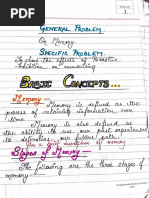 1
GENERAL PROBLEM.
On Memory.
SPECIFIC PROBLEM.
To show the effects of Proactive
Inhibition on memorizing
BASIC CONCEPTS...
Memory:-
Memory is also defined as the
process of retaining information over
time.
Memory is also defined as
the ability to use our past experiences
to
Stages of Memory
The following are the three stages of
memory:-